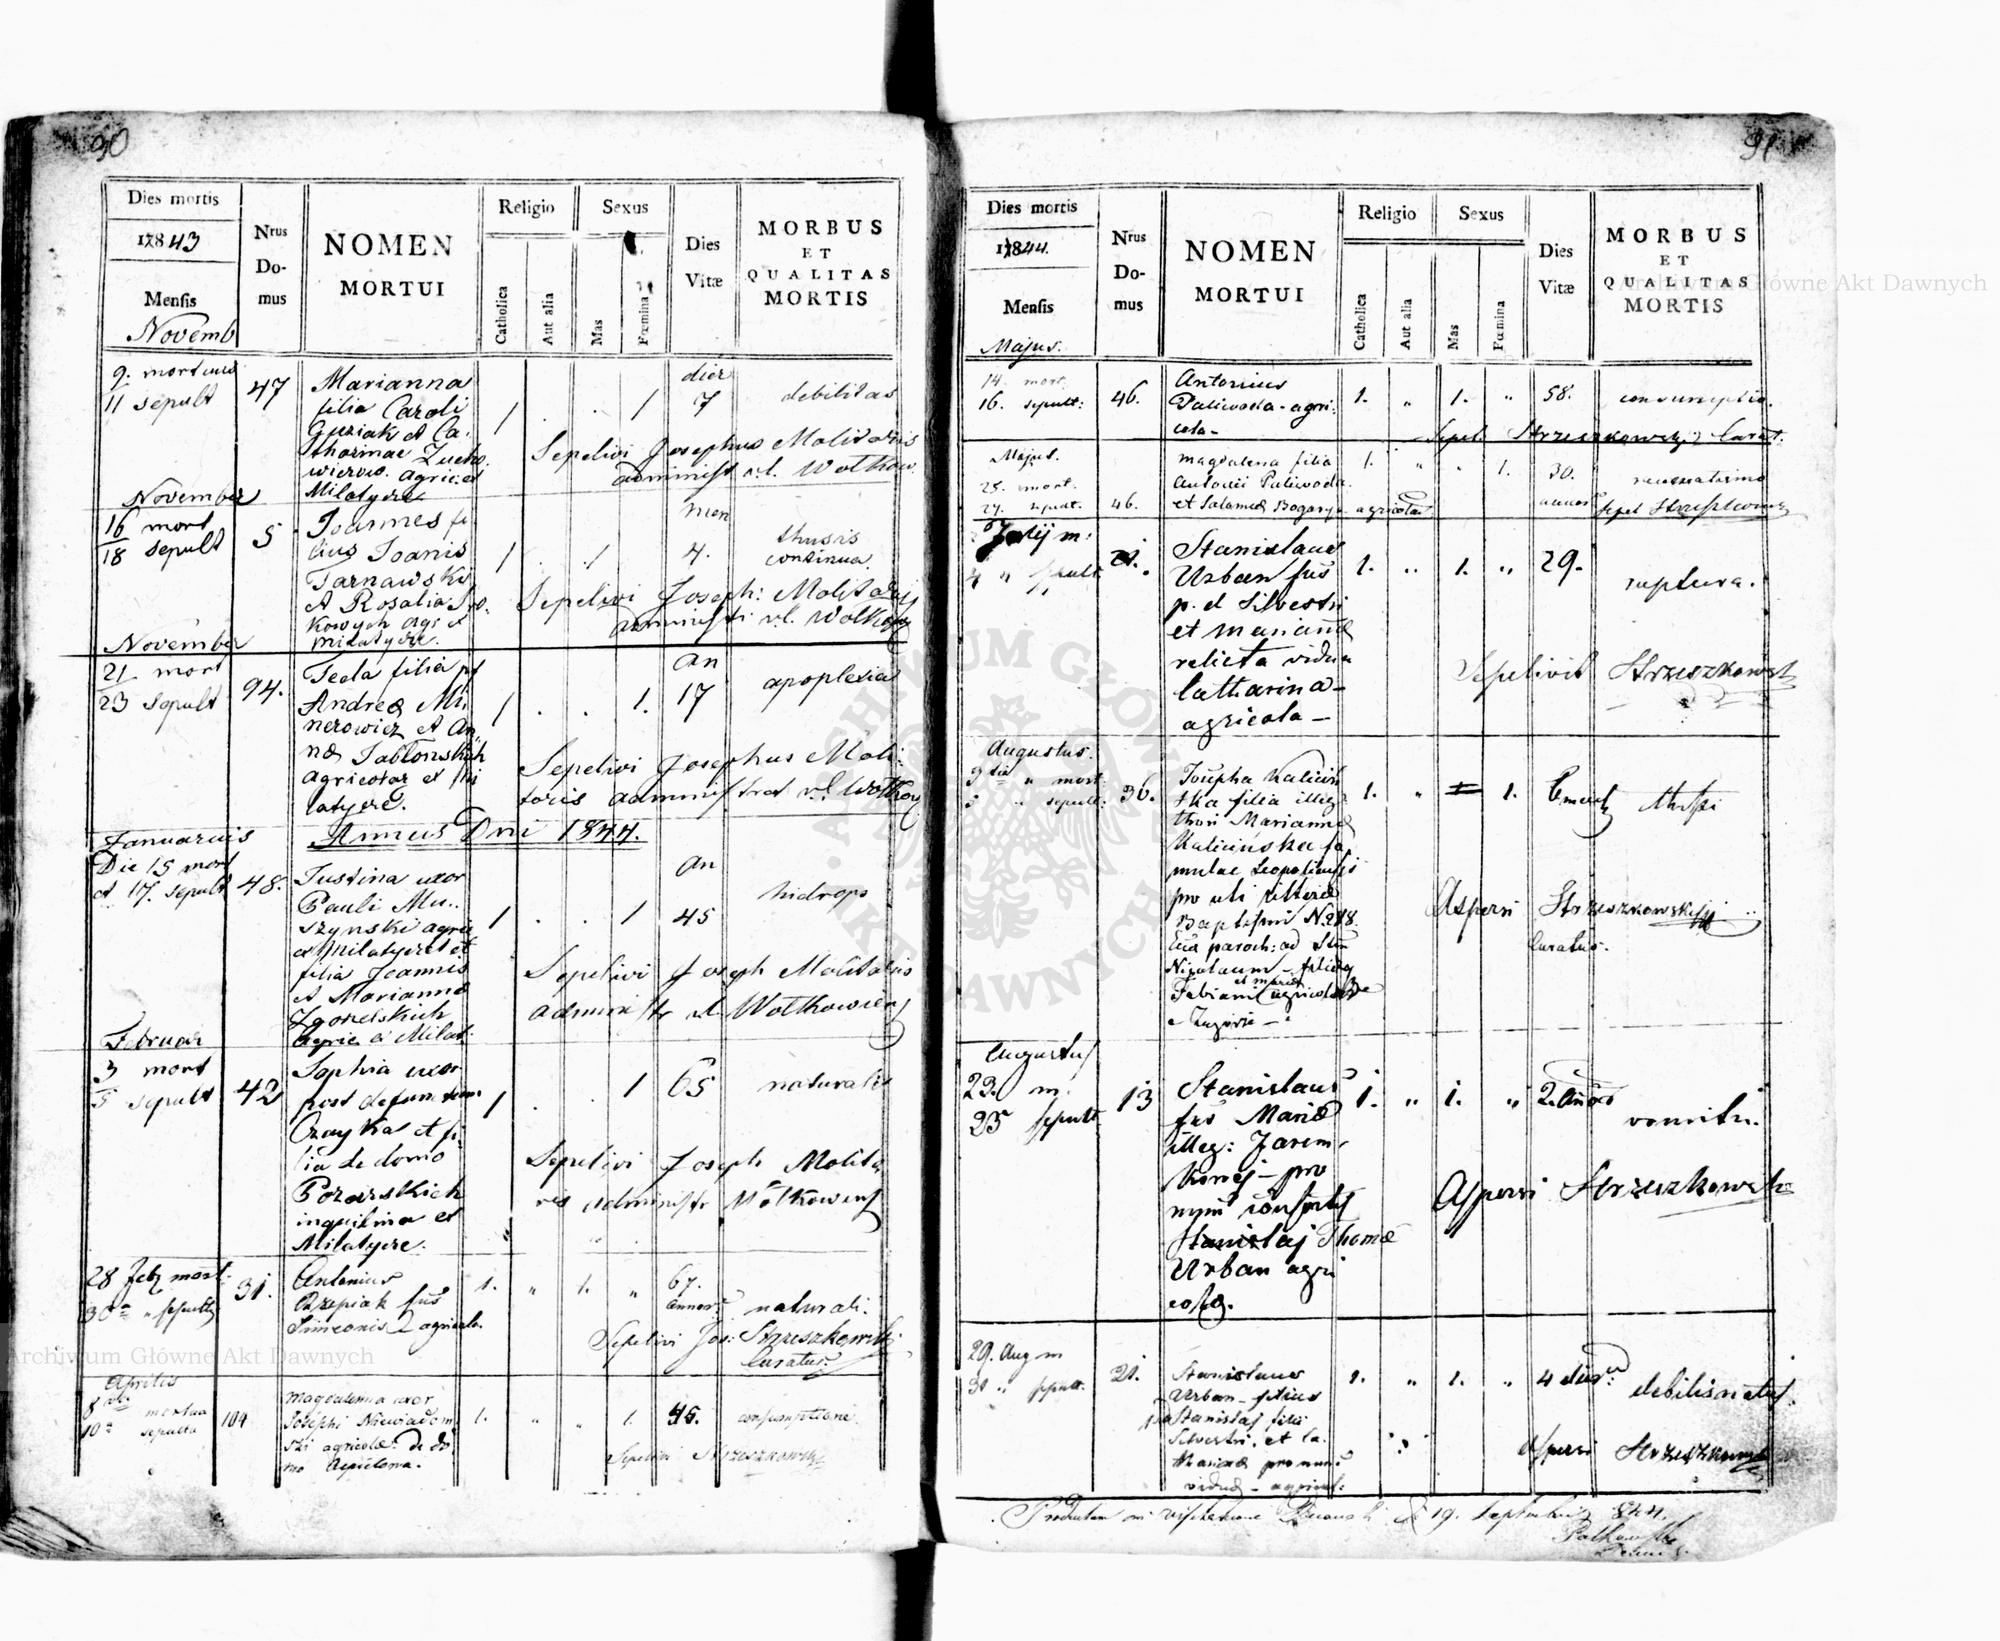 90
Dies mortis
1843
Mensis
Novemb
Nrus
Do-
mus
NOMEN
MORTUI
Religio
Catholica
Aut alia
Sexus
Mas
Fœmina
Dies
Vitæ
MORBUS
ET
QUALITAS
MORTIS
9. mortuus
11 sepult
47
Marianna
filia Caroli
Guziak et Ca-
tharinae
agric. et
Milatycze
1 . . 1
dier
7
debilitas
Sepelivi Josephus Molitoris
administ v.l. Wolkow.
November
16 mort
18 sepult
5
Joannes fi
lius Joanis
Tarnawski
et Rosalia
kowych agr: et
milatycze.
1 . 1
men
4.
thusis
continua
Sepelivi Joseph: Molitoris
administ v.l. Wolkow
November
21 mort
23 sepult
94.
Tecla filia
Andreæ Mi
nerowicz et An
næ Jabłonskich
agricolar et Mi
latycze.
1 . . 1.
an
17
apoplexia
Sepelivi Josephus Moli-
toris administrat v.l. Wolkow
Annus Dni 1844.
Januarius
Die 15 mort
et 17. sepult
48.
Justina uxor
Pauli Mu..
szynski agric
ex Milatycze et
filia Joannis
et Mariannæ
Zgorzelskich
agric ex Milat:
1 . . 1
an
45
hidrops
Sepelivi Joseph Molitoris
administr v.l. Wolkowien
Februar
3 mort
5 sepult
42
Sophia uxor
post defunctum
Czayka et fi-
lia de domo
Pozarskich
inquilina ex
Milatycze.
1 . . 1
65
naturalis
Sepelivi Joseph Molito
ris administr Wolkowien
28 Feb mort.
30 " sepult
31.
Antonius
Rzepiak fius
Simeonis agricola.
1. " 1. "
67.
annor
naturali.
Sepelivi Jos: Strzeszkowski
Curatus
Aprilis
8 mortua
10 sepulta
104
Magdalenna uxor
Josephi Niewiadom
ski agricolæ: de do
mo
1. " " 1.
45.
consumptione
Sepelivi Strzeszkowski
91
Dies mortis
1844.
Mensis
Majus.
Nrus
Do-
mus
NOMEN
MORTUI
Religio
Catholica
Aut alia
Sexus
Mas
Fœmina
Dies
Vitæ
MORBUS
ET
QUALITAS
MORTIS
14. mort.
16. sepult:
46.
Antonius
Paliwoda - agri:
cola -
1. " 1. "
58.
consumptio.
Sepel. Strzeszkowski Curat.
Majus.
25. mort.
27. sepult.
46.
Magdalena filia
Antonii Paliwoda
et Salomeæ agricolar
1. " " 1.
30.
annor
Sepel
Julij m:
4 " sepult
21.
Stanislaus
Urban fius
p. d Silvestri
et Mariannæ
relicta vidua
Catharina -
agricola -
1. " 1. "
29.
ruptura.
Sepelivit Strzeszkowski
Augustus.
9 " mort
" sepult:
36.
Josepha Kalicin
ska filia illeg
thori Mariannæ
Kalicinska fa
mulae Leopoliensis
pro uti litteræ
Baptismi No 218.
paroch: ad Stm
Nicolaum -
Fabiani et Mariæ agricolar
1. " 1.
thusi
Aspersi Strzeszkowski
Curatus.
Augustus
23. m.
25 sepult
13
Stanislaus
fius Mariæ
illeg: Jarem
- pro
Stanislaj Thomæ
Urban agri
colæ.
1. " 1. "
2. Annor
vomitu.
Aspersi Strzeszkowski
29. Aug m
31 " sepult.
21.
Stanislaus
Urban - filius
p Stanislaj filii
Silvestri, et Ca-
tharinæ pro nunc
viduæ - agricol:
1. " 1. "
4 dier
debilis natus.
Aspersi Strzeszkowski
19. Septembris 844.
Archiwum Główne Akt Dawnych
Archiwum Główne Akt Dawnych
ARCHIWUM GŁÓWNE AKT DAWNYCH